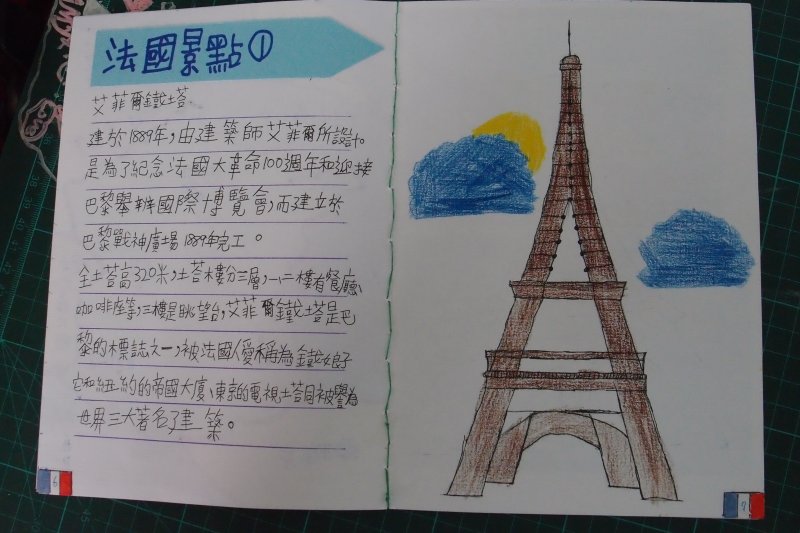 法國景點①
艾菲爾鐵塔
建於1889年,由建築師艾菲爾所設計。
是為了紀念法國大革命100週年和迎接
巴黎舉辦國際博覽會,而建立於
巴黎戰神廣場1889年完工。
全塔高320米,塔樓分三層,一、二樓有餐廳、
咖啡座等,三樓是眺望台,艾菲爾鐵塔是巴
黎的標誌之一,被法國人愛稱為鐵娘子
它和紐約的帝國大廈、東京的電視塔同被譽為
世界三大著名建築。
6
7